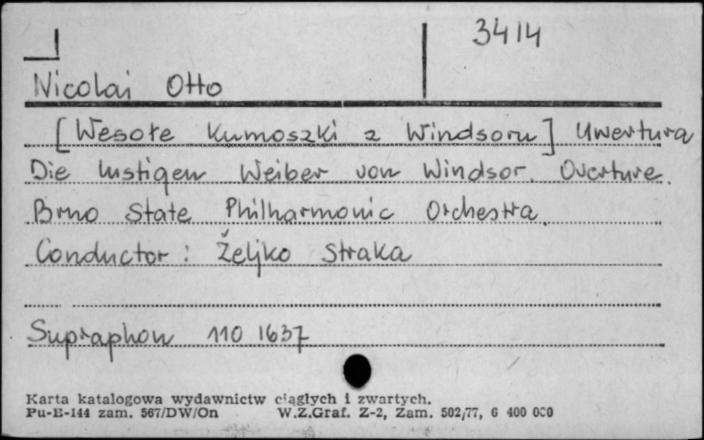 3414
Nicolai Otto
[Wesołe Kumoszki z Windsoru] Uwertura
Die lustigen Weiber von Windsor. Overture.
Brno State Philharmonic Orchestra.
Conductor: Željko Straka
Supraphon 110 1637
Karta katalogowa wydawnictw ciągłych i zwartych.
Pu-B-144 zam. 567/DW/On W.Z.Graf. Z-2, Zam. 502/77, 6 400 000